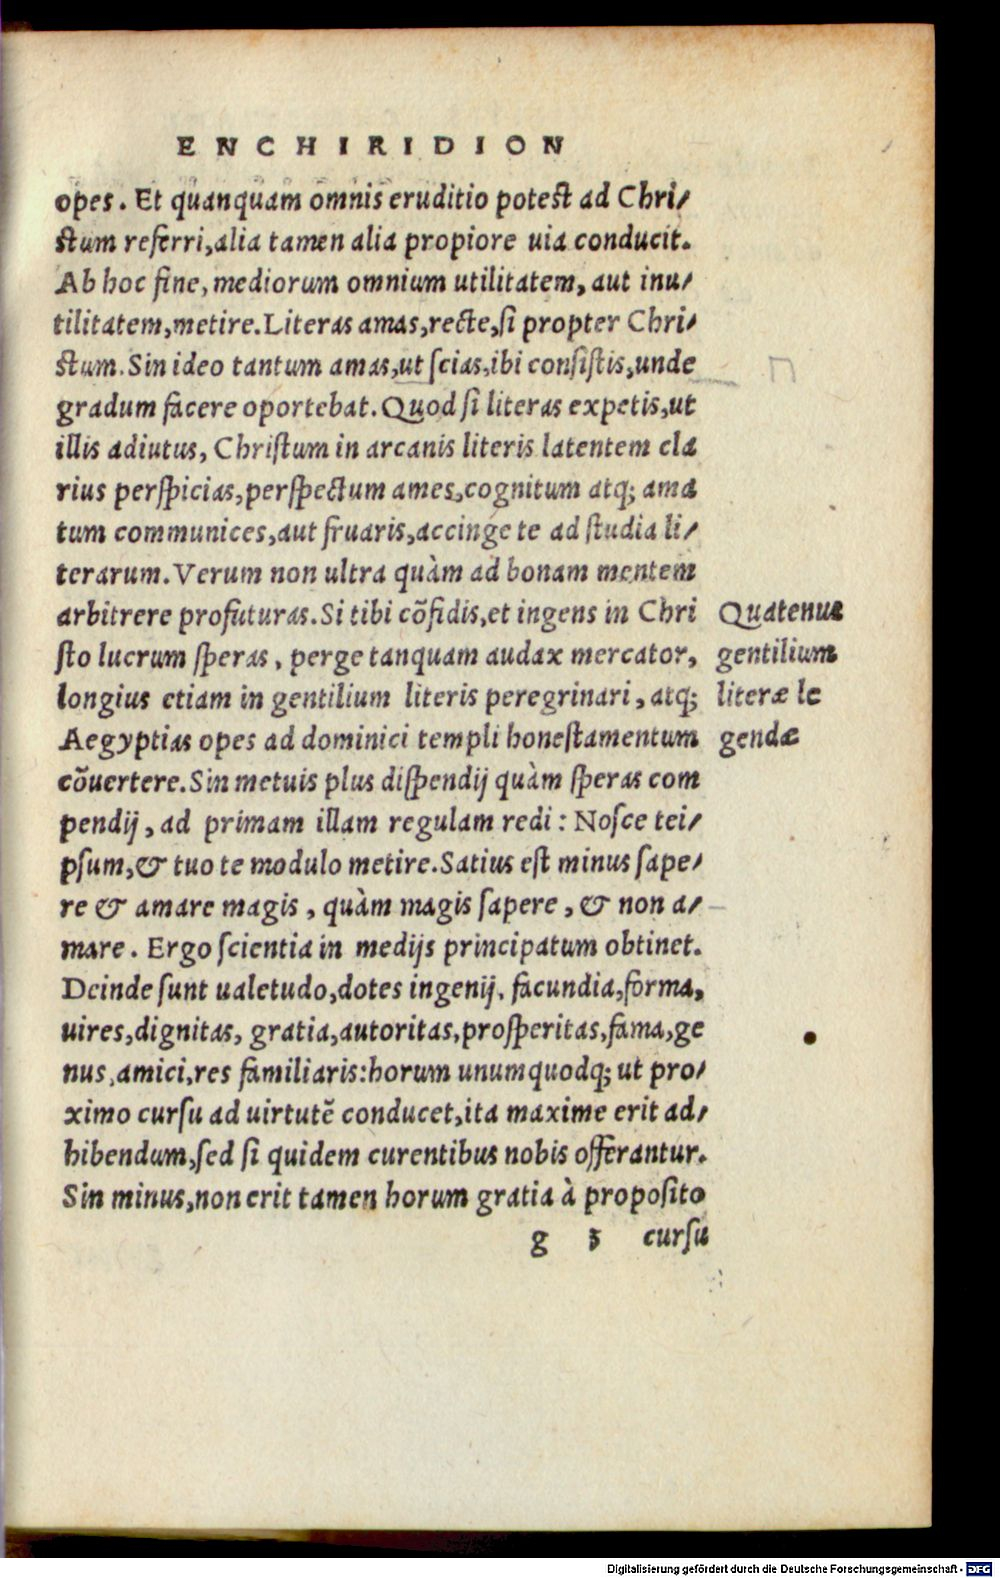 ENCHIRIDION
opes. Et quanquam omnis eruditio potest ad Chri/
stum referri, alia tamen alia propiore uia conducit.
Ab hoc fine, mediorum omnium utilitatem, aut inu/
tilitatem, metire. Literas amas, recte, si propter Chri/
stum. Sin ideo tantum amas, ut scias, ibi consistis, unde
gradum facere oportebat. Quod si literas expetis, ut
illis adiutus, Christum in arcanis literis latentem cla
rius perspicias, perspectum ames, cognitum atq; ama
tum communices, aut fruaris, accinge te ad studia li/
terarum. Verum non ultra quàm ad bonam mentem
arbitrere profuturas. Si tibi cõfidis, et ingens in Chri
sto lucrum speras, perge tanquam audax mercator,
longius etiam in gentilium literis peregrinari, atq;
Aegyptias opes ad dominici templi honestamentum
cõuertere. Sin metuis plus dispendij quàm speras com
pendij, ad primam illam regulam redi: Nosce tei/
psum, & tuo te modulo metire. Satius est minus sape/
re & amare magis, quàm magis sapere, & non a/
mare. Ergo scientia in medijs principatum obtinet.
Deinde sunt ualetudo, dotes ingenij, facundia, forma,
uires, dignitas, gratia, autoritas, prosperitas, fama, ge
nus, amici, res familiaris: horum unumquodq; ut pro/
ximo cursu ad uirtutẽ conducet, ita maxime erit ad/
hibendum, sed si quidem curentibus nobis offerantur.
Sin minus, non erit tamen horum gratia à proposito
g 3 cursu
Quatenus
gentilium
literæ le
gendæ
Digitalisierung gefördert durch die Deutsche Forschungsgemeinschaft - DFG